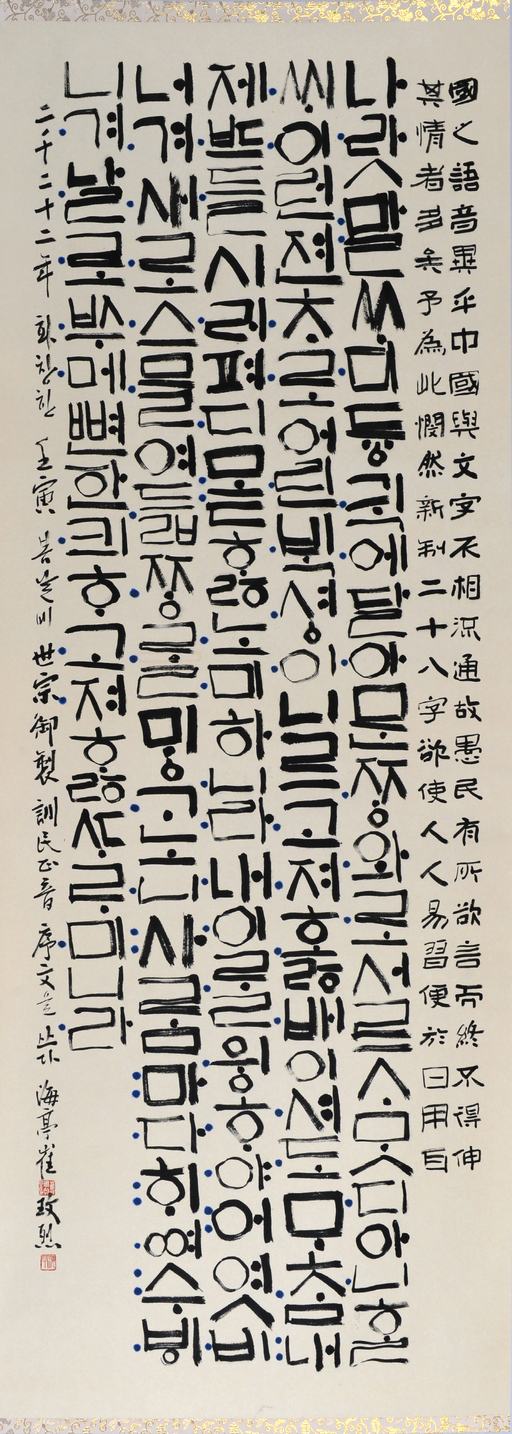 國之語音異乎中國與文字不相流通故愚民有所欲言而終不得伸
其情者多矣予為此憫然新制二十八字欲使人人易習便於日用耳
나랏말ᄊᆞ미듕귁에달아문ᄍᆞᆼ와로서르ᄉᆞᄆᆞᆺ디아니ᄒᆞᆯ
ᄊᆡ이런젼ᄎᆞ로어린ᄇᆡᆨ셔ᇰ이니르고져호ᇙ배이셔도ᄆᆞᄎᆞᆷ내
제ᄠᅳ들시러펴디몯ᄒᆞᇙ노미하니라내이ᄅᆞᆯ윙ᄒᆞ야어엿비
너겨새로스믈여듧ᄍᆞᆼᄅᆞᆯᄆᆡᇰᄀᆞ노니사ᄅᆞᆷ마다ᄒᆡᅇᅧ수ᄫᅵ
니겨날로ᄡᅮ메뼌한킈ᄒᆞ고져ᄒᆞᇙᄯᆞᄅᆞ미니라
二千二十二年 화창한 壬寅 봄날에 世宗御製 訓民正音 序文을 쓰다 海亭 崔玫烈